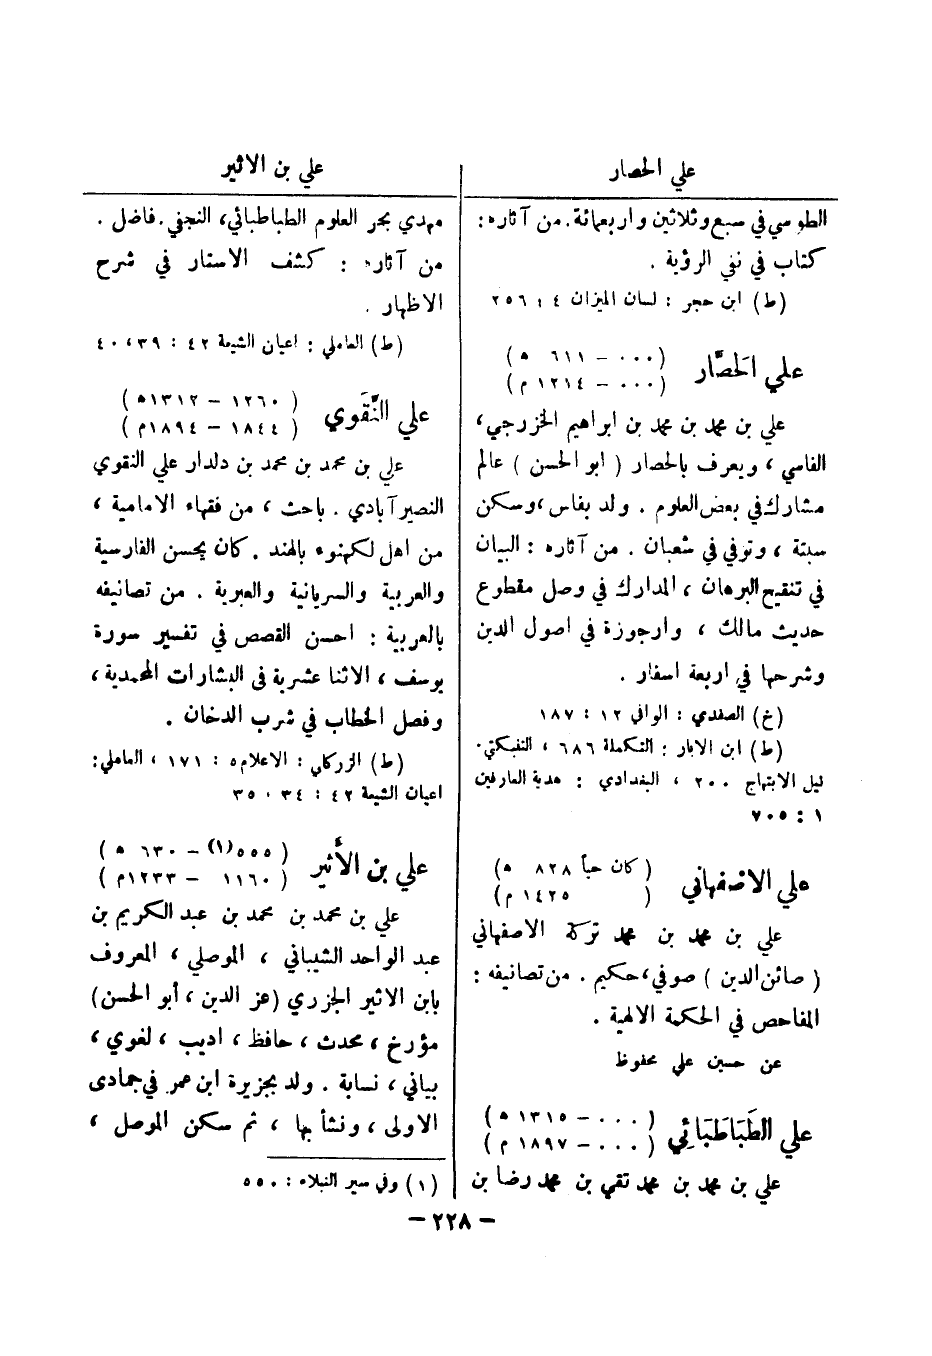 علي الحصار
الطوسي في سبع وثلاثين واربعمائة. من آثاره:
كتاب في نفي الرؤية .
(ط) ابن حجر : لسان الميزان ٤ : ٢٥٦
علي الحَصَّار
(٠٠٠ – ٦١١ ه)
(٠٠٠ – ١٢١٤ م)
علي بن محمد بن محمد بن ابراهيم الخزرجي،
الفاسي ، ويعرف بالحصار ( ابو الحسن ) عالم
مشارك في بعض العلوم . ولد بفاس ، وسكن
سبتة ، وتوفي في شعبان . من آثاره : البيان
في تنقيح البرهان ، المدارك في وصل مقطوع
حديث مالك ، وارجوزة في اصول الدين
وشرحها في اربعة اسفار .
(خ) الصفدي : الوافي ١٢ : ١٨٧
(ط) ابن الابار : التكملة ٦٨٦ ، التنبكتي .
نيل الابتهاج ٢٠٠ ، البغدادي : هدية العارفين
١ : ٧٠٥
علي الاصفهاني
( كان حياً ٨٢٨ ه)
( ١٤٢٥ م)
علي بن محمد بن محمد تركة الاصفهاني
( صائن الدين ) صوفي ، حكيم . من تصانيفه :
المفاحص في الحكمة الالهية .
عن حسين علي محفوظ
علي الطَبَاطَبَائِي
( ٠٠٠ – ١٣١٥ ه )
( ٠٠٠ – ١٨٩٧ م )
علي بن محمد بن محمد تقي بن محمد رضا بن
علي بن الاثير
مهدي بحر العلوم الطباطبائي، النجفي. فاضل .
من آثاره : كشف الاستار في شرح
الاظهار .
(ط) العاملي : اعيان الشيعة ٤٢ : ٣٩ ، ٤٠
علي النَّقَوي
( ١٢٦٠ – ١٣١٢ه )
( ١٨٤٤ – ١٨٩٤م )
علي بن محمد بن محمد بن دلدار علي النقوي
النصير آبادي . باحث ، من فقهاء الامامية ،
من اهل لكهنوء بالهند . كان يحسن الفارسية
والعربية والسريانية والعبرية . من تصانيفه
بالعربية : احسن القصص في تفسير سورة
يوسف ، الاثنا عشرية في البشارات المحمدية ،
وفصل الخطاب في شرب الدخان .
(ط) الزركلي : الاعلام ٥ : ١٧١ ، العاملي:
اعيان الشيعة ٤٢ : ٣٤ ، ٣٥
علي بن الأثير
( ٥٥٥(١) – ٦٣٠ ه )
( ١١٦٠ – ١٢٣٣م )
علي بن محمد بن محمد بن عبد الكريم بن
عبد الواحد الشيباني ، الموصلي ، المعروف
بابن الاثير الجزري (عز الدين ، أبو الحسن)
مؤرخ ، محدث ، حافظ ، اديب ، لغوي ،
بياني ، نسابة . ولد بجزيرة ابن عمر في جمادى
الاولى ، ونشأ بها ، ثم سكن الموصل ،
(١) وفي سير النبلاء : ٥٥٠
– ٢٢٨ –